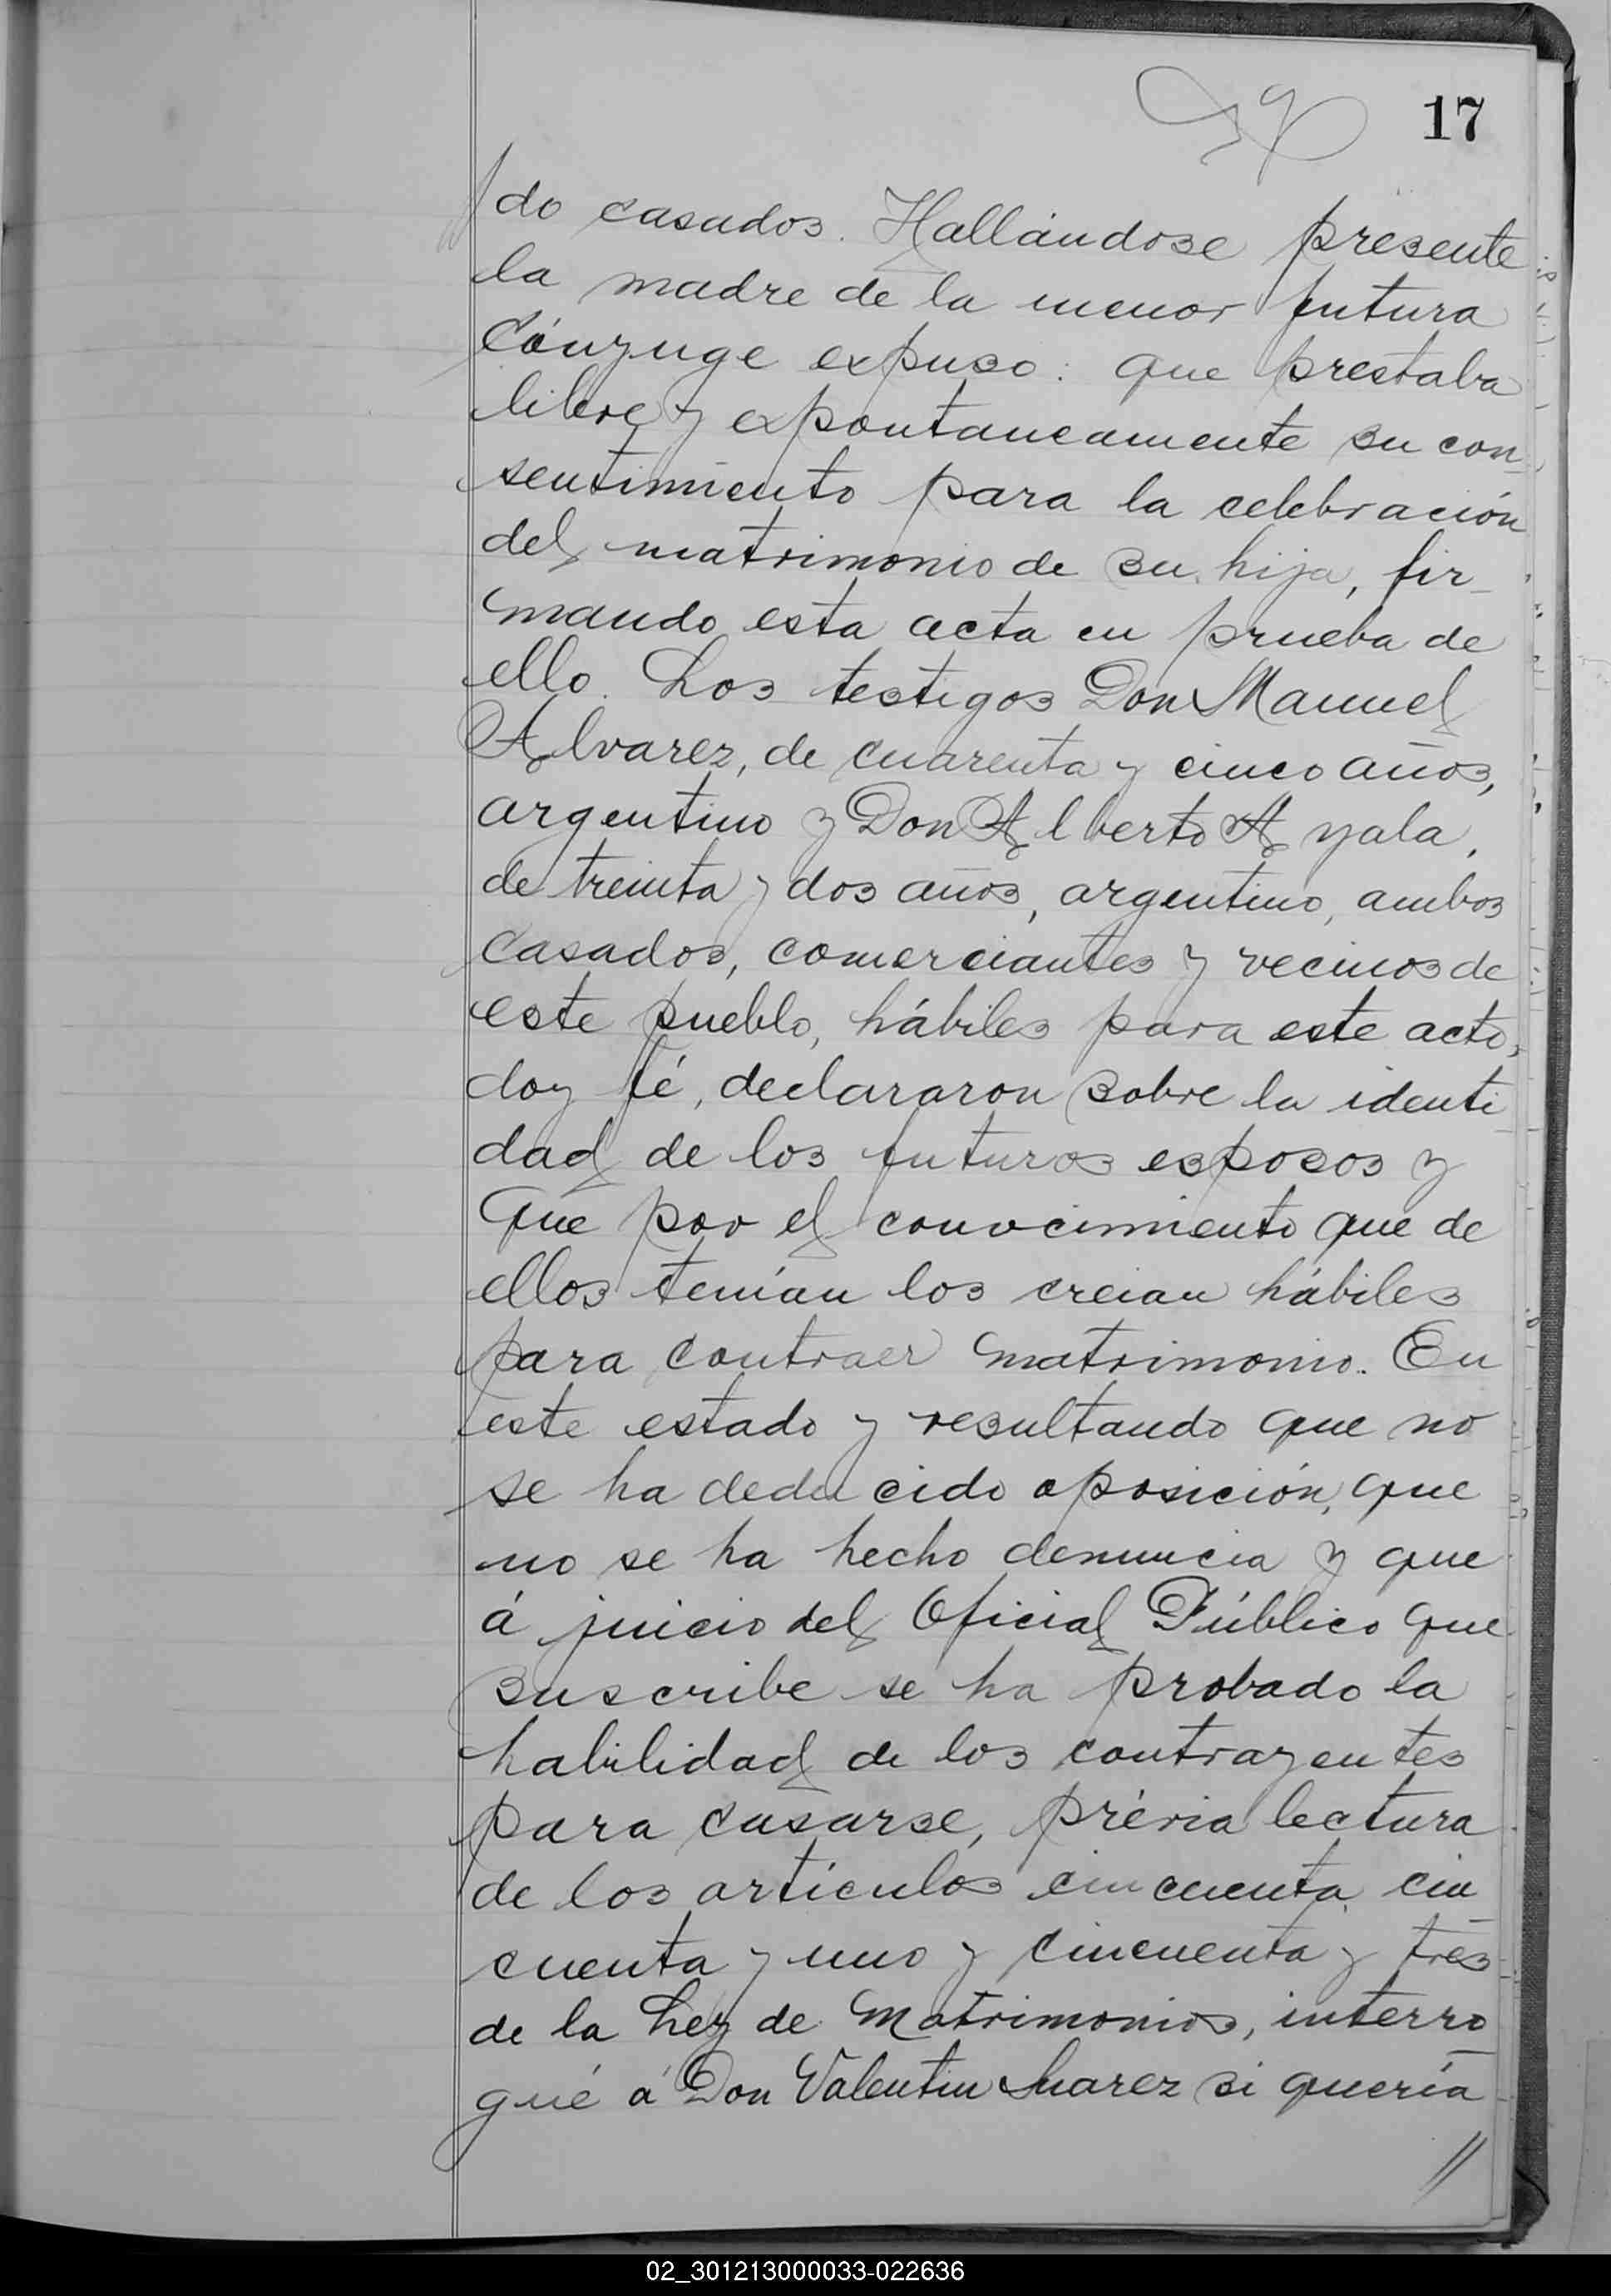 17
do casados. Hallándose presente
la madre de la menor futura
cónyuge expuso: que prestaba
libre y expontaneamente su con
sentimiento para la celebración
del matrimonio de su hija, fir
mando esta acta en prueba de
ello. Los testigos Don Manuel
Alvarez, de cuarenta y cinco años,
argentino y Don Alberto Ayala,
de treinta y dos años, argentino, ambos
casados, comerciantes y vecinos de
este pueblo, hábiles para este acto,
doy fé, declararon sobre la identi
dad de los futuros esposos y
que por el conocimiento que de
ellos tenían los creian hábiles
para contraer matrimonio. En
este estado y resultando que no
se ha deducido oposición, que
no se ha hecho denuncia y que
á juicio del Oficial Público que
suscribe se ha probado la
habilidad de los contrayentes
para casarse, prévia lectura
de los artículos cincuenta, cin
cuenta y uno y cincuenta y tres
de la Ley de Matrimonios, interro
gué á Don Valentin Suarez si quería
//
02_301213000033-022636